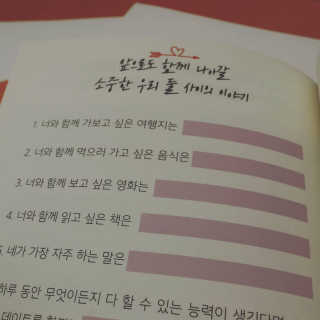 앞으로도 함께 나아갈
소중한 우리 둘 사이의 이야기
1. 너와 함께 가보고 싶은 여행지는
2. 너와 함께 먹으러 가고 싶은 음식은
3. 너와 함께 보고 싶은 영화는
4. 너와 함께 읽고 싶은 책은
5. 네가 가장 자주 하는 말은
하루 동안 무엇이든지 다 할 수 있는 능력이 생긴다면